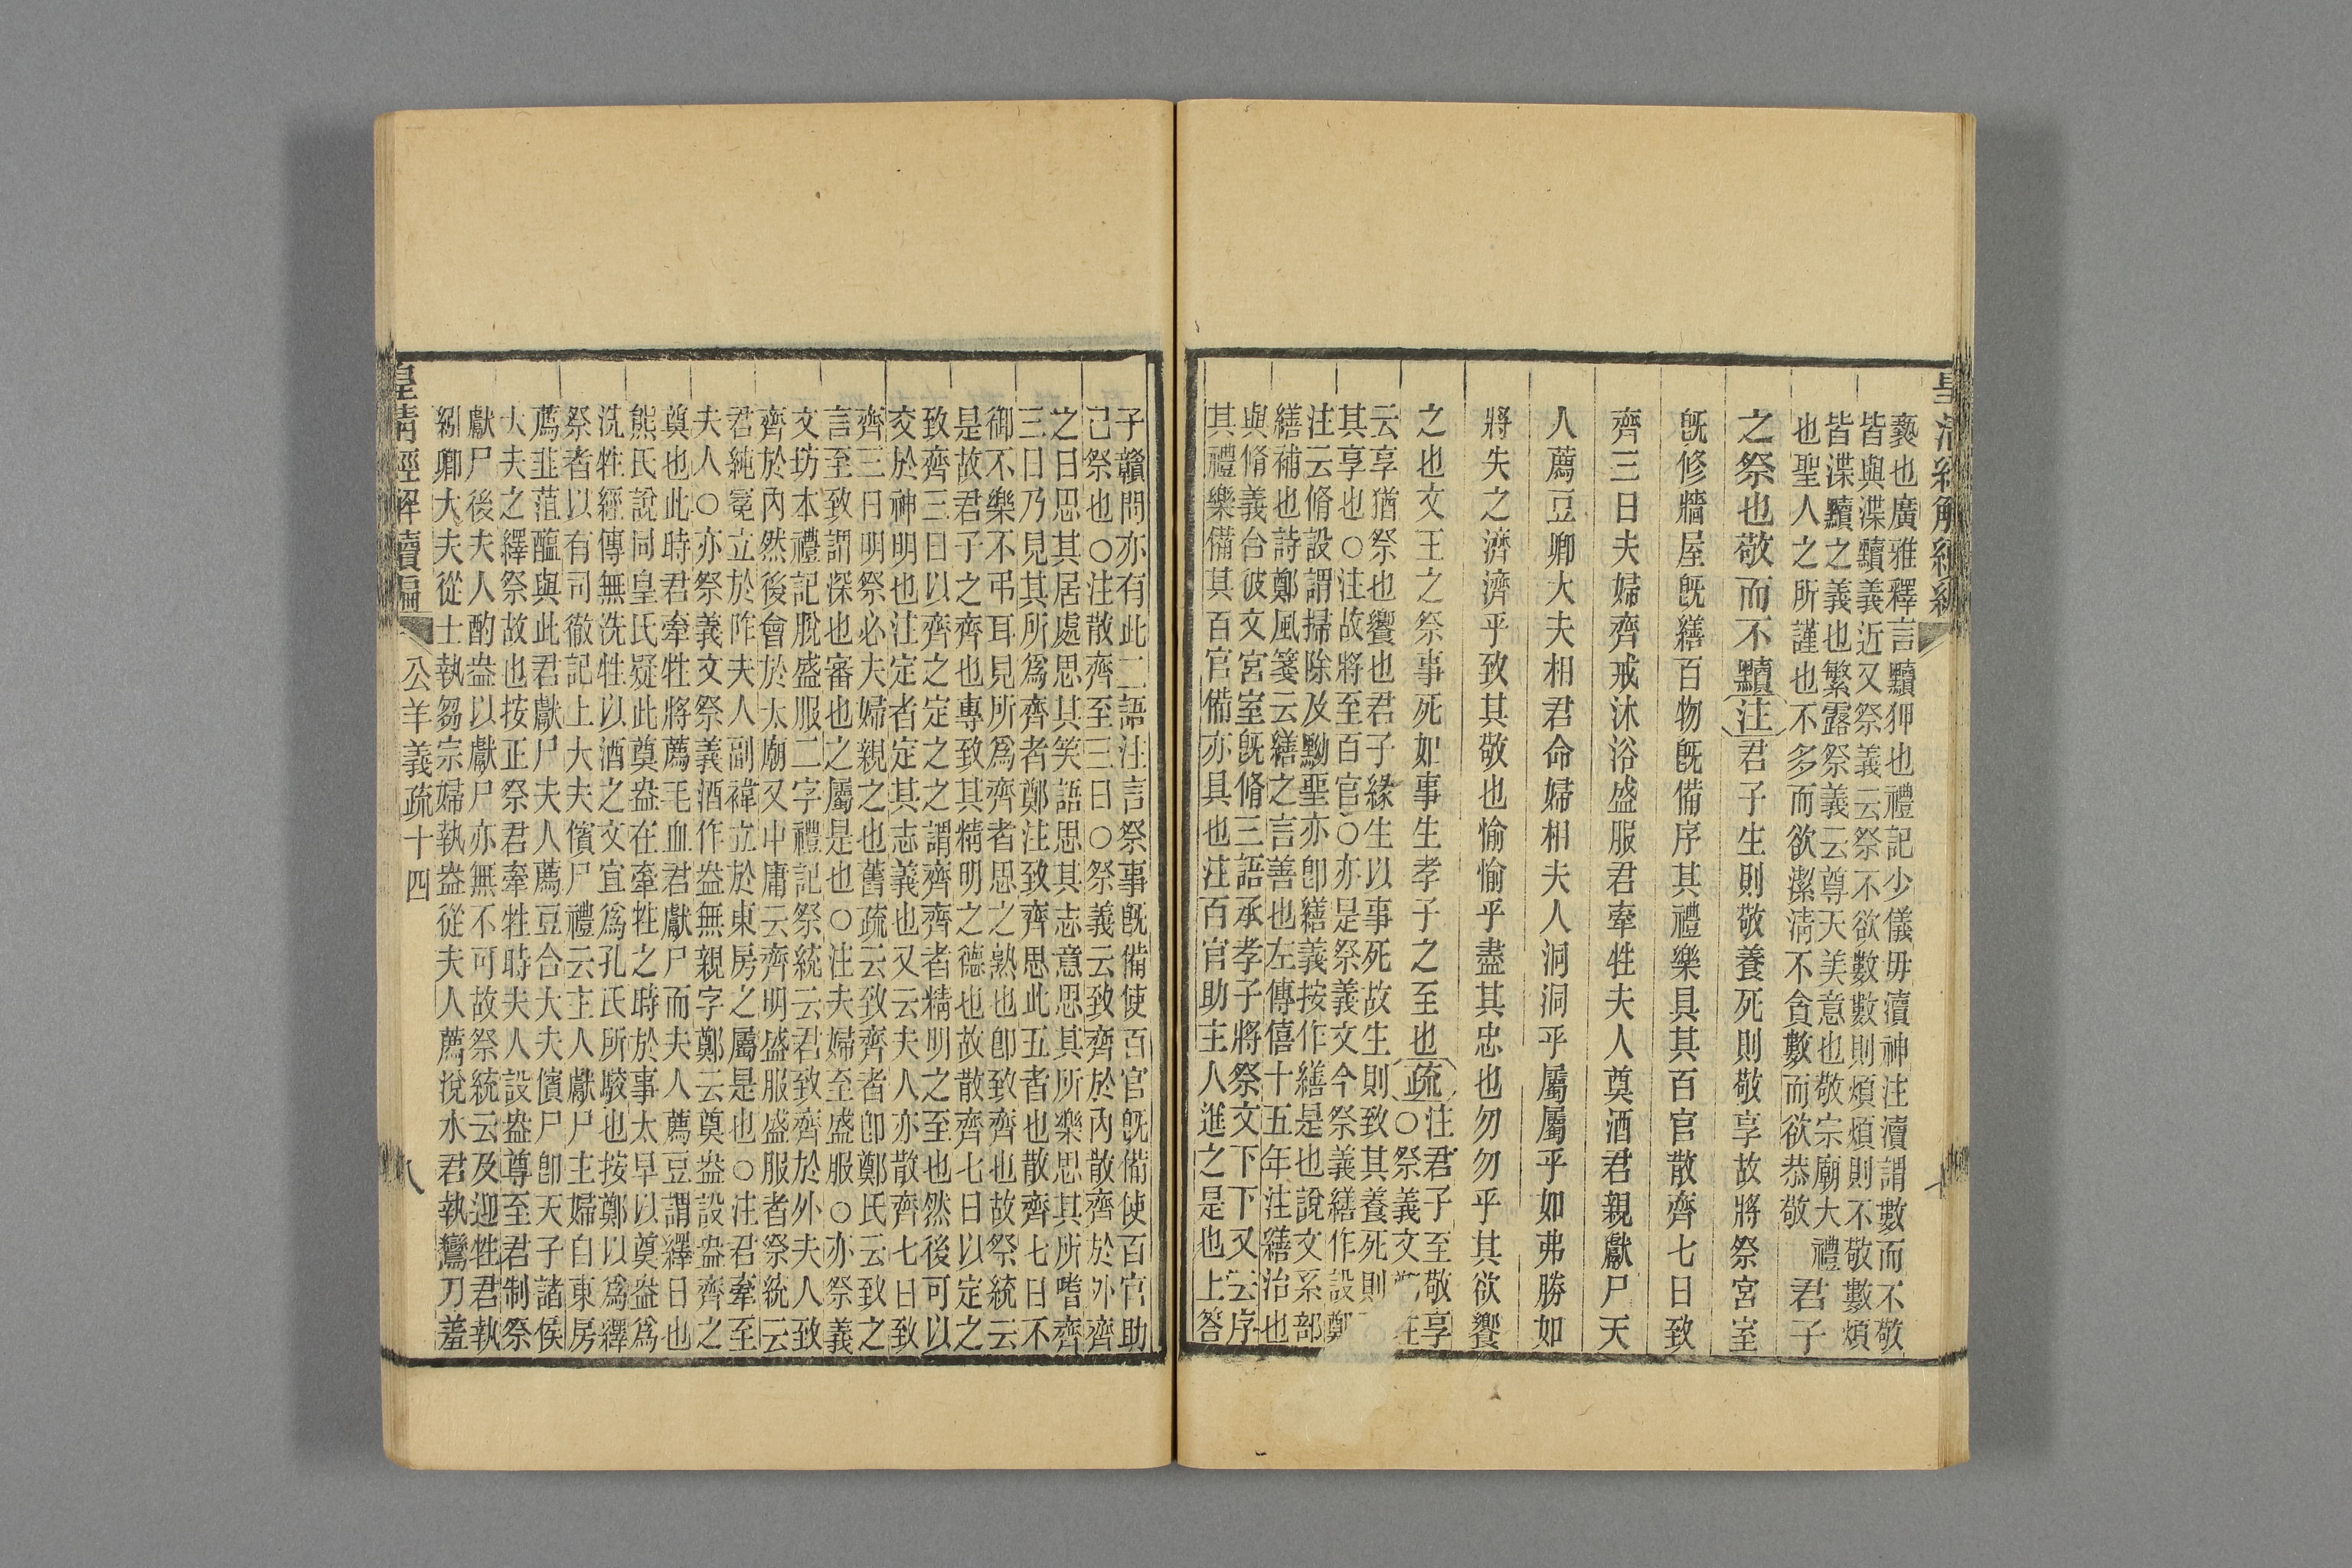 褻也廣雅釋言黷狎也禮記少儀毋瀆神注瀆謂數而不敬
皆與渫黷義近又祭義云祭不欲數數則煩煩則不敬數煩
皆渫黷之義也繁露祭義云尊天美意也敬宗廟大禮
也聖人之所謹也不多而欲潔清不貪數而欲恭敬
君子
之祭也敬而不黷注君子生則敬養死則敬享故將祭宮室
既修牆屋既繕百物既備序其禮樂具其百官散齊七日致
齊三日夫婦齊戒沐浴盛服君牽牲夫人奠酒君親獻尸天
人薦豆卿大夫相君命婦相夫人洞洞乎屬屬乎如弗勝如
將失之濟濟乎致其敬也愉愉乎盡其忠也勿勿乎其欲饗
之也文王之祭事死如事生孝子之至也疏
注君子至敬享
○祭義文
云享猶祭也饗也君子緣生以事死故生則致其養死則
其享也○注故將至百官○亦是祭義文今祭義繕作設鄭
注云脩設謂掃除及黝堊亦即繕義按作繕是也說文系部
繕補也詩鄭風箋云繕之言善也左傳僖十五年注繕治也
與脩義合彼文宮室既脩三語承孝子將祭文下下又云序
其禮樂備其百官備亦具也注百官助主人進之是也上答
子贛問亦有此二語注言祭事既備使百官既備使百官助
己祭也○注散齊至三日○祭義云致齊於內散齊於外齊
之日思其居處思其笑語思其志意思其所樂思其所嗜齊
三日乃見其所為齊者鄭注致齊思此五者也散齊七日不
御不樂不弔耳見所為齊者思之熟也即致齊也故祭統云
是故君子之齊也專致其精明之德也故散齊七日以定之
致齊三日以齊之定之之謂齊齊者精明之至也然後可以
交於神明也注定者定其志義也又云夫人亦散齊七日致
齊三日明祭必夫婦親之也舊疏云致齊者即鄭氏云致之
言至致謂深也審也之屬是也○注夫婦至盛服○亦祭義
文坊本禮記脫盛服二字禮記祭統云君致齊於外夫人致
齊於內然後會於太廟又中庸云齊明盛服盛服者祭統云
君純冕立於阼夫人副褘立於東房之屬是也○注君牽至
夫人○亦祭義文祭義酒作盎無親字鄭云奠盎設盎齊之
奠也此時君牽牲將薦毛血君獻尸而夫人薦豆謂繹日也
熊氏說同皇氏疑此奠盎在牽牲之時於事太早以奠盎為
洗牲經傳無洗牲以酒之文宜為孔氏所駮也按鄭以為繹
祭者以有司徹記上大夫儐尸禮云主人獻尸主婦自東房
薦韭菹醢與此君獻尸夫人薦豆合大夫儐尸即天子諸侯
大夫之繹祭故也按正祭君牽牲時夫人設盎尊至君制祭
獻尸後夫人酌盎以獻尸亦無不可故祭統云及迎牲君執
紖卿大夫從士執芻宗婦執盎從夫人薦涗水君執鸞刀羞
皇清經解續編
公羊義疏十四
八